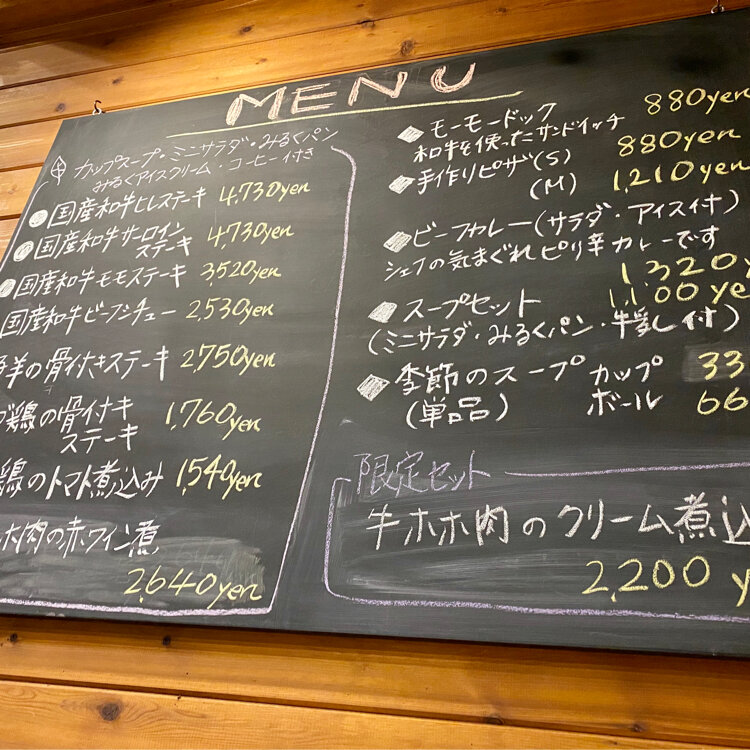 MENU
カップスープ・ミニサラダ・みるくパン
みるくアイスクリーム・コーヒー付き
国産和牛ヒレステーキ 4,730yen
国産和牛サーロイン
ステーキ 4,730yen
国産和牛モモステーキ 3,520yen
国産和牛ビーフシチュー 2,530yen
羊の骨付きステーキ 2,750yen
鶏の骨付キ
ステーキ 1,760yen
鶏のトマト煮込み 1,540yen
ホ肉の赤ワイン煮
2,640yen
モーモードック 880yen
和牛を使ったサンドイッチ
手作りピザ(S) 880yen
(M) 1,210yen
ビーフカレー(サラダ・アイス付)
シェフの気まぐれピリ辛カレーです
1,320y
スープセット 1,100ye
(ミニサラダ・みるくパン・牛乳付)
季節のスープ カップ 33
(単品) ボール 66
限定セット
牛ホホ肉のクリーム煮込
2,200y